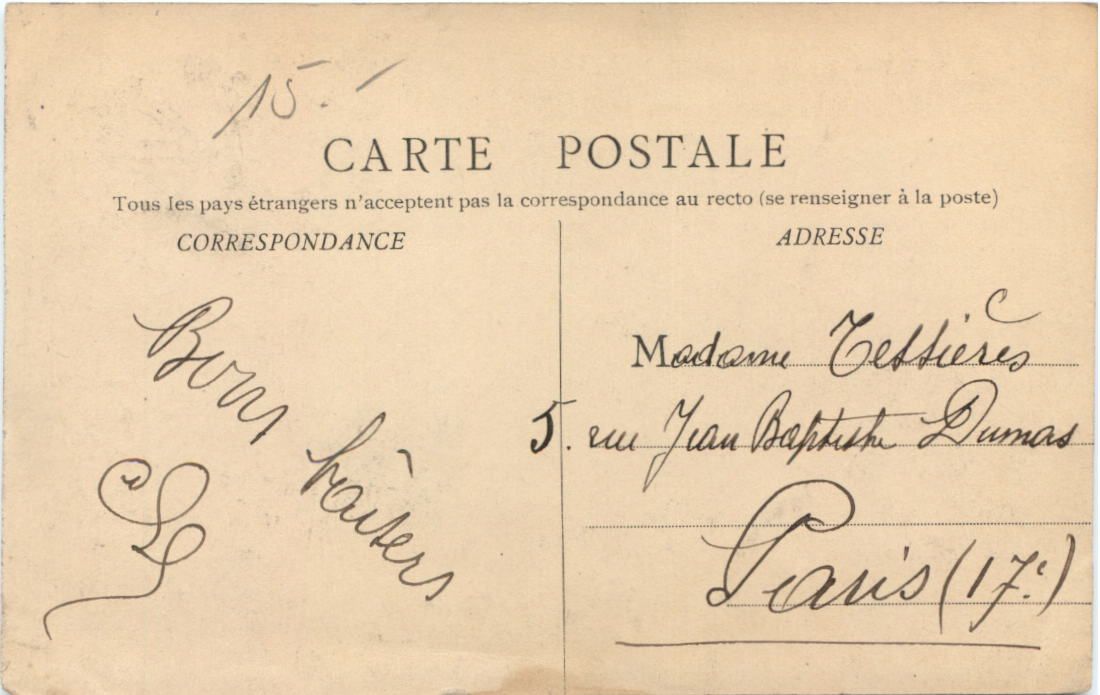 15.-
CARTE POSTALE
Tous les pays étrangers n'acceptent pas la correspondance au recto (se renseigner à la poste)
CORRESPONDANCE
Bons
baisers
ADRESSE
Madame Tessières
5. rue Jean Baptiste Dumas
Paris (17e)